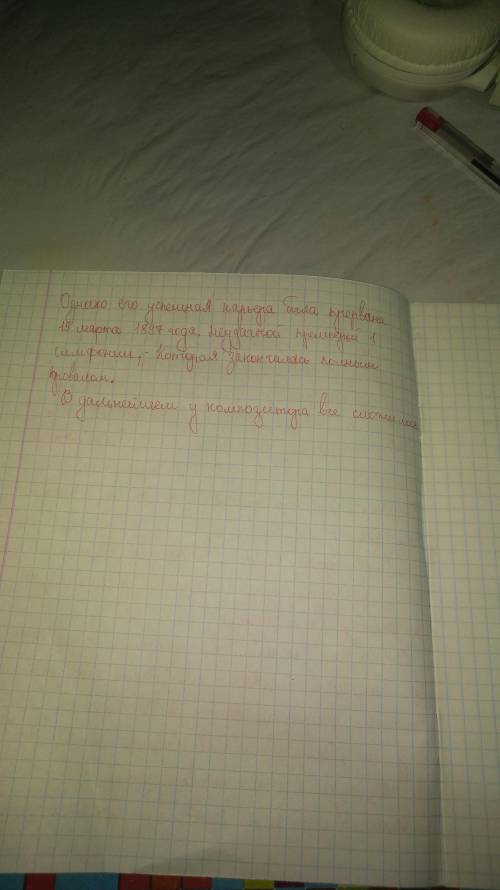 Однако его успешная карьера была прервана
15 марта 1897 года. неудачной премьерой 1
симфонии,- которая закончилась полным
провалом.
В дальнейшем у композитора все